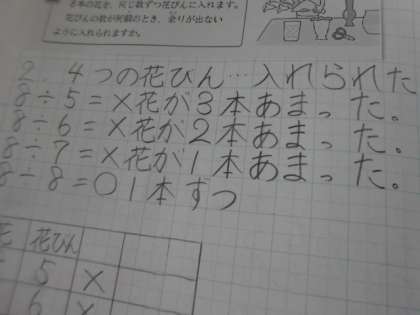 る本の花を、同じ数ずつ花びんに入れます。
花びんの数が何個のとき、余りが出ない
ように入れられますか。
2. 4つの花びん…入れられた
8÷5=×花が3本あまった。
8÷6=×花が2本あまった。
8÷7=×花が1本あまった。
8÷8=○1本ずつ
花びん
5 ×
6 ×